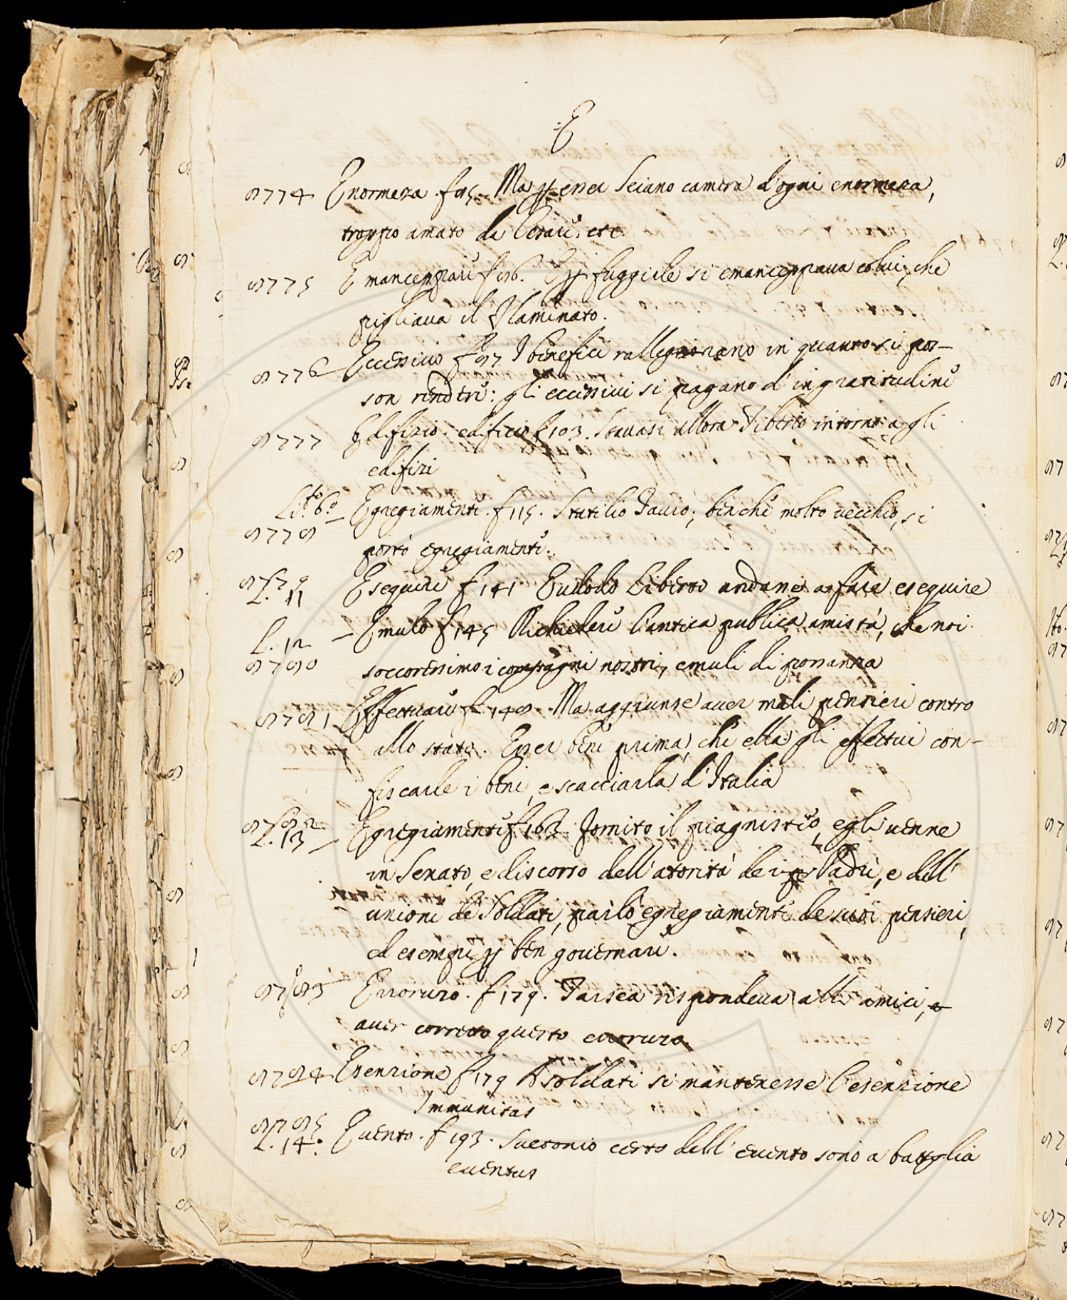 E
8774 Enormezza. f. 95. Ma per esser Seiano camera d'ogni enormezza,
troppo amato da Cesare, etc.
8775 Emancepare f. 96. Per fuggirle si emancippava colui, che
pigliava il Flaminato.
8776 Eccessivo f. 97 I benefici rallegrorano in quanto si pos-
son rendere: gli eccessivi si pagano d'ingratitudine
8777 Edifizio: edificio f. 103. Stavasi allora Tiberio intorno a gli
edifizi
Lib. 6º Egregiamente. f. 115. Statilio Tauro, benche molto vecchio, si
8778 portò egregiamente.
8779 Eseguire f. 141 Evilodo Liberto andane a fare eseguire
L. 11
L. 12 Emulo f. 145 Richiedere l'antica publica amistà, che noi
8780 soccoressimo i compagni nostri, emuli di possanza
8781 Effettuare f. 148. Ma aggiunse aver mali pensieri contro
allo stato. Esser bene prima, che ella gli effettui con-
fiscarle i beni, e scacciarla d'Italia
8782 Egregiamente f. 163. Fornito il piagnisteo, egli venne
L. 13
in Senato, e discorso dell'atorità de i Padri, e dell'
unione de Soldati, parlò egregiamente de suoi pensieri,
ed esempi per ben governare.
8783 Erroruzo. f. 179. Tarsea rispondeva alli amici,
aver corretto questo erroruzo
8784 Esenzione f. 179 A soldati si mantenesse l'esenzione
Immunitas
8785 Evento. f. 193. Suetonio certo dell'evento sonò a battaglia
L. 14.
eventus